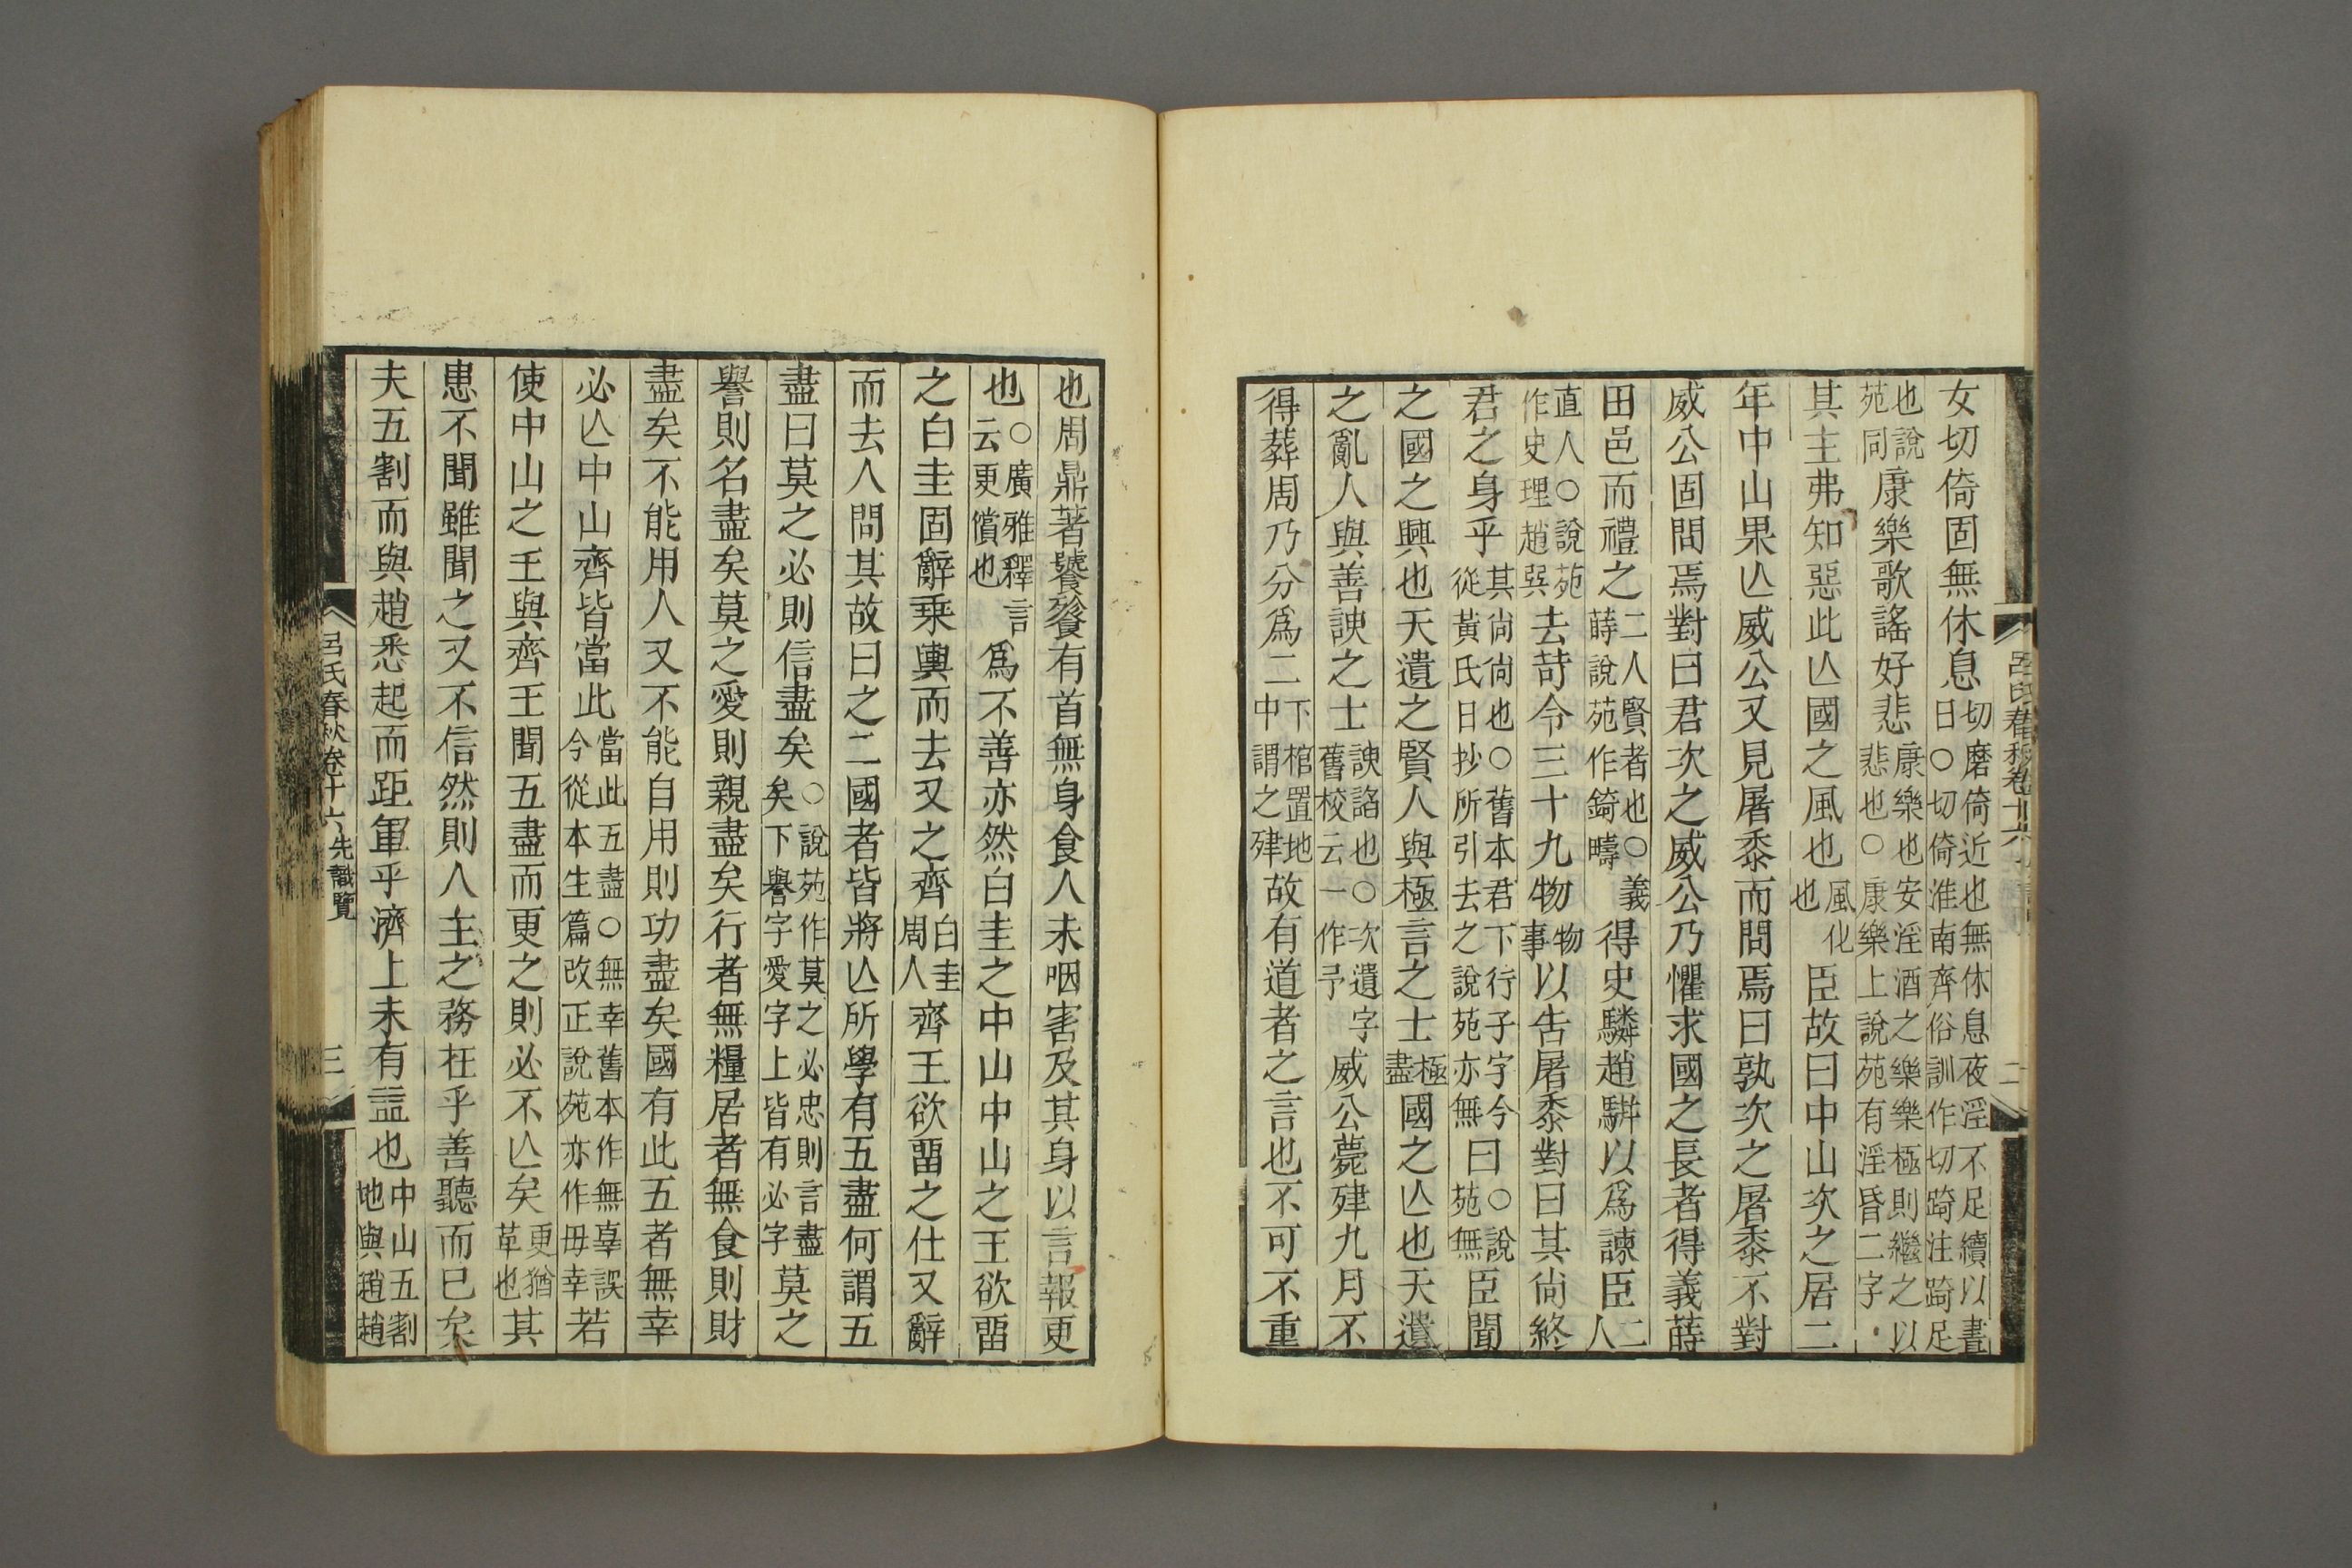 呂氏春秋卷十六
二
女切倚固無休息切磨倚近也無休息夜淫不足續以晝日○切倚淮南齊俗訓作切踦注踦足
也說苑同康樂歌謠好悲康樂也安淫酒之樂樂極則繼之以悲也○康樂上說苑有淫昏二字
其主弗知惡此亾國之風也風化也臣故曰中山次之居二
年中山果亾威公又見屠黍而問焉曰孰次之屠黍不對
威公固問焉對曰君次之威公乃懼求國之長者得義蒔
田邑而禮之二人賢者也○義蒔說苑作錡疇得史驎趙騈以爲諫臣二人
直人○說苑作史理趙巽去苛令三十九物物事以告屠黍對曰其尙終
君之身乎其尙尙也○舊本君下行子字今從黃氏日抄所引去之說苑亦無曰○說苑無臣聞
之國之興也天遺之賢人與極言之士極盡國之亾也天遺
之亂人與善諛之士諛諂也○次遺字舊校云一作予威公薨肂九月不
得葬周乃分爲二下棺置地中謂之肂故有道者之言也不可不重
也周鼎著饕餮有首無身食人未咽害及其身以言報更
也○廣雅釋言云更償也爲不善亦然白圭之中山中山之王欲畱
之白圭固辭乗輿而去又之齊白圭周人齊王欲畱之仕又辭
而去人問其故曰之二國者皆將亾所學有五盡何謂五
盡曰莫之必則信盡矣○說苑作莫之必忠則言盡矣下譽字愛字上皆有必字莫之
譽則名盡矣莫之愛則親盡矣行者無糧居者無食則財
盡矣不能用人又不能自用則功盡矣國有此五者無幸
必亾中山齊皆當此當此五盡○無幸舊本作無辜誤今從本生篇改正說苑亦作毋幸若
使中山之王與齊王聞五盡而更之則必不亾矣更猶革也其
患不聞雖聞之又不信然則人主之務在乎善聽而已矣
夫五割而與趙悉起而距軍乎濟上未有益也中山五割地與趙趙
呂氏春秋卷十六 先識覽
三